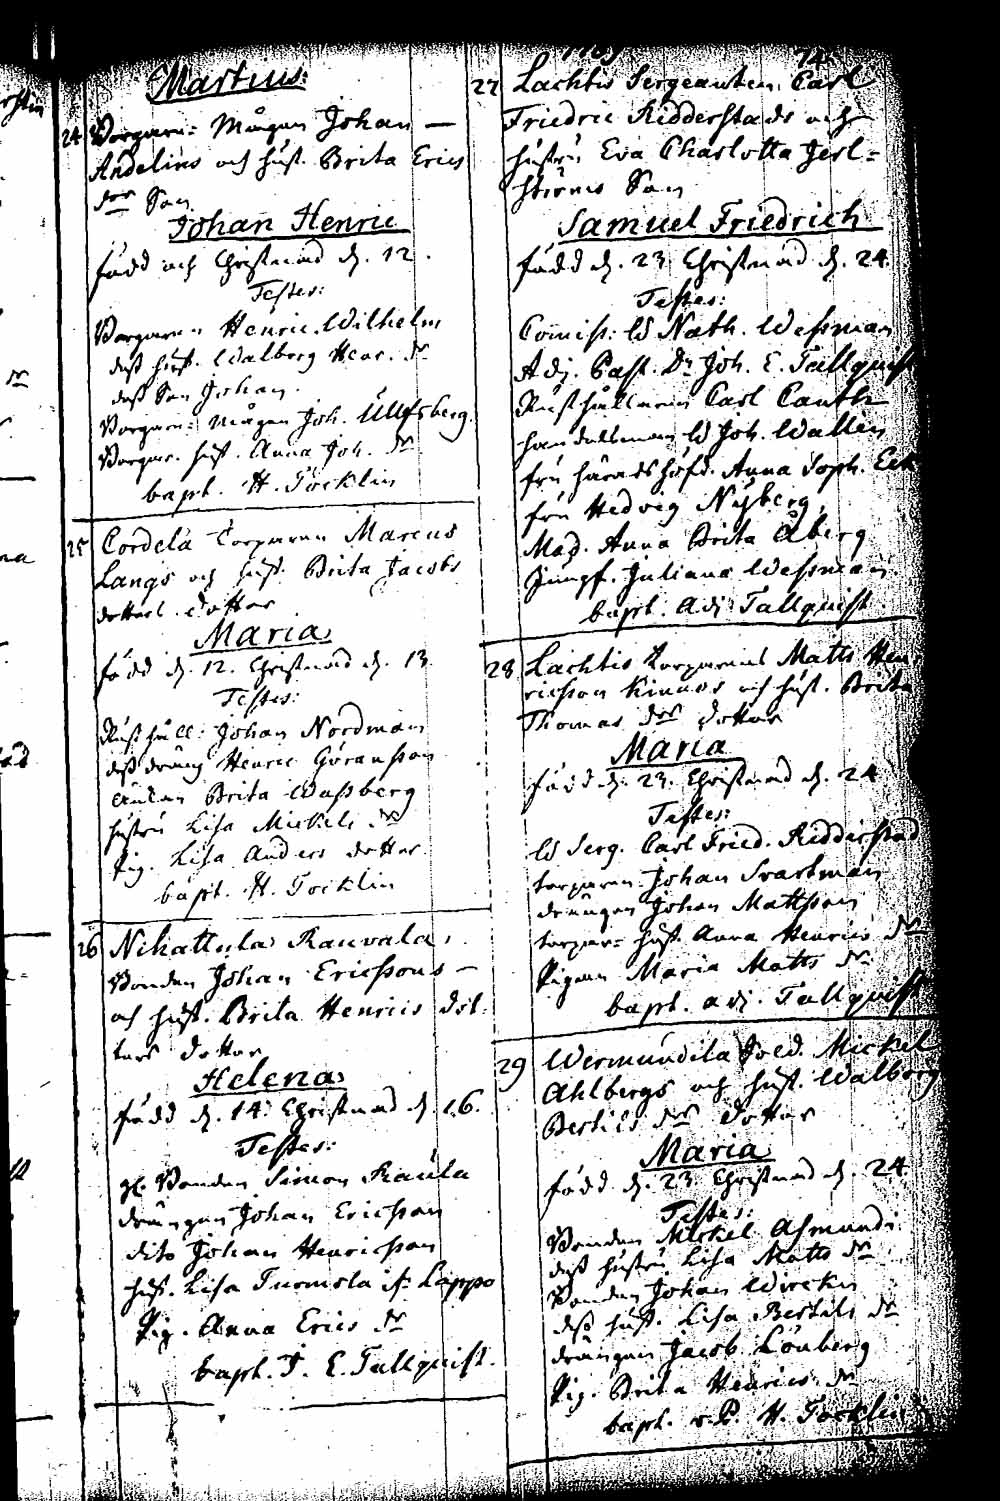 Martius:
24 Borgare= Mågen Johan —
Andelins och hust. Brita Erics
dr Son
Johan Henric
född och Christnad d. 12.
Testes:
Borgaren Henric Wilhelm
dess hust. Walborg Henr. dr
dess Son Johan.
Borgare= mågen Joh. Ullfsberg.
Borgar. hust. Anna Joh. dr
bapt. H. Töcklin
25 Cordela Torparen Marcus
Langs och hust. Brita Jacobs
dotters dotter
Maria
född d. 12. Christnad d. 13.
Testes:
Rusthåll: Johan Nordman
dess dräng Henric Göransson
Brita Wassberg
hustru Lisa Mickels dr
Pig. Lisa Anders dotter
bapt. H. Töcklin
26 Nihattula Rauvala,
Bonden Johan Ericssons —
och hust. Brita Henrics döt-
ters dotter
Helena
född d. 14. Christnad d. 16.
Testes:
gl. Bonden Simon Raula
drängen Johan Ericsson
dito Johan Henricsson
hust. Lisa Tuomola fr. Lappo
Pig. Anna Erics dr
bapt. J. E. Tallquist.
74.
27 Lachtis Sergeanten Carl
Friedric Ridderstads och
hustru Eva Charlotta Jerl=
stiernas Son
Samuel Friedrich
född d. 23 Christnad d. 24.
Testes:
Comiss. W Nath. Wessman
Adj. Past. Dn Joh. E. Tallquist
Rusthållaren Carl Canth
handelsman W Joh. Wallén
fru häradshöfd. Anna Soph. Eek
fru Hedvig Nyberg
Mad. Anna Brita Åberg
Jungf. Juliana Wessman
bapt. Adj Tallquist.
28 Lachtis torparens Matts Hen
ricsson Kinnos och hust. Brita
Thomas dr dotter
Maria
född d. 23. Christnad d. 24
Testes:
W Serg. Carl Fried. Ridderstad
torparen Johan Svartman
drängen Johan Mattsson
torpar= hust. Anna Henrics dr
Pigan Maria Matts dr
bapt. adj. Tallquist
29 Wermundila Sold. Mickel
Ahlbergs och hust. Walborg
Bertils dr dotter
Maria
född d. 23. Christnad d. 24.
Testes:
Bonden Mickel Asmundi
dess hustru Lisa Matts dr
Bonden Johan Wirckn
dess hust. Lisa Bertils dr
drängen Jacob Lönberg
Pig. Brita Henrics dr
bapt. v. P. H. Töcklin